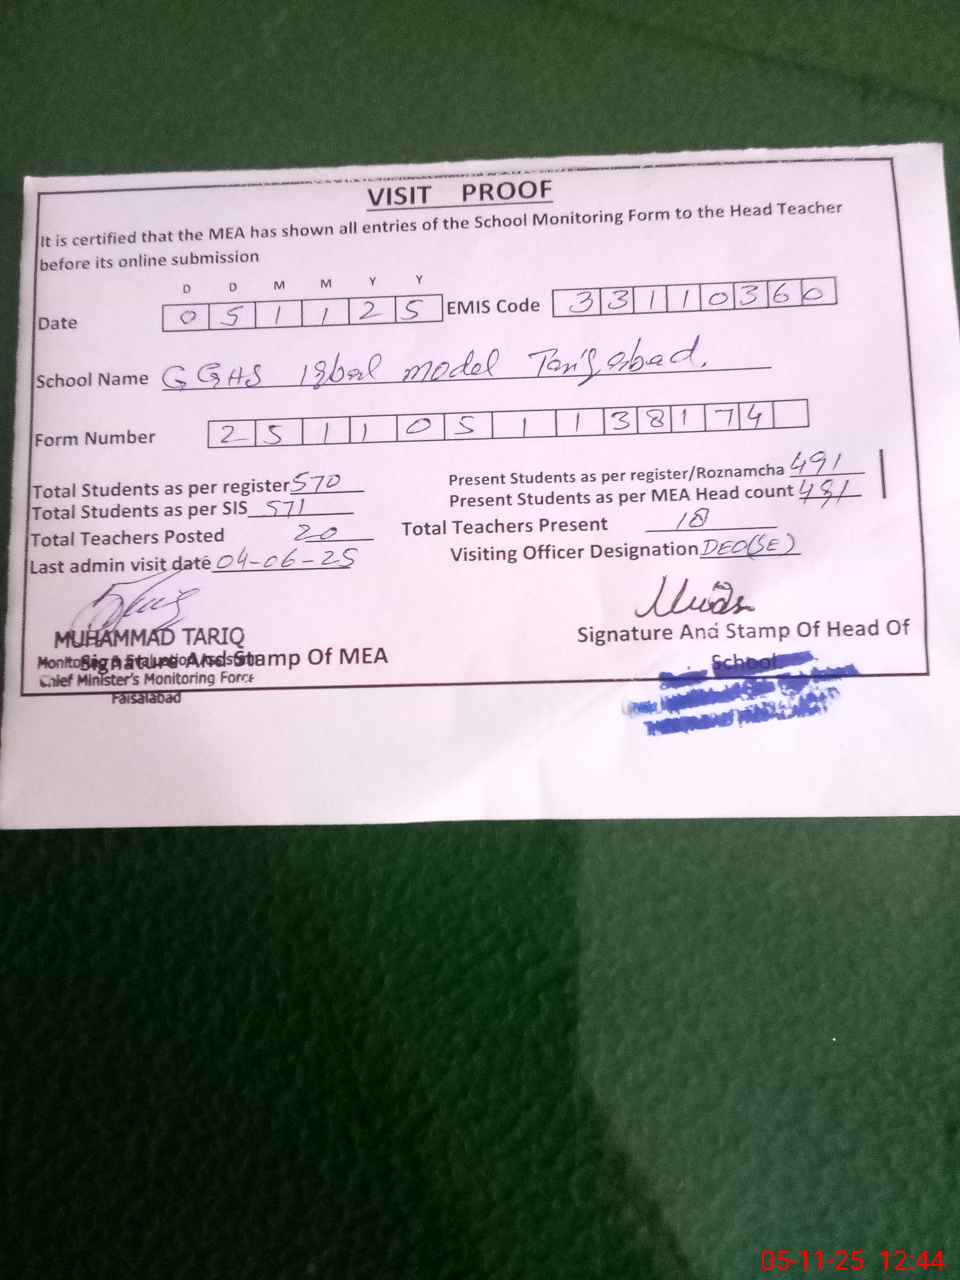 VISIT PROOF
It is certified that the MEA has shown all entries of the School Monitoring Form to the Head Teacher
before its online submission
D D M M Y Y
Date 0 5 1 1 2 5 EMIS Code 3 3 1 1 0 3 6 0
School Name GGHS Iqbal model
Form Number 2 5 1 1 0 5 1 1 3 8 1 7 4
Total Students as per register 570 Present Students as per register/Roznamcha 491
Total Students as per SIS 571 Present Students as per MEA Head count 491
Total Teachers Posted 20 Total Teachers Present 18
Last admin visit date 04-06-25 Visiting Officer Designation DEO(SE)
MUHAMMAD TARIQ
Signature And Stamp Of Head Of
School
Monitoring & Evaluation Assistant
Signature And Stamp Of MEA
Chief Minister's Monitoring Force
Faisalabad
05-11-25 12:44